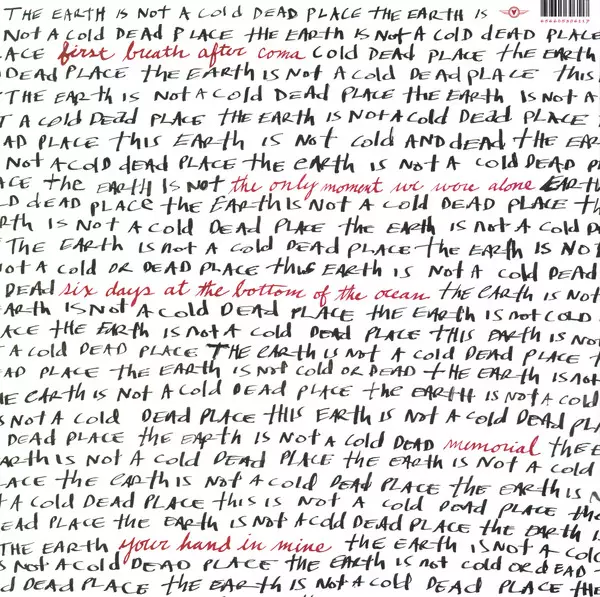 THE EARTH IS NOT A COLD DEAD PLACE THE EARTH IS
NOT A COLD DEAD PLACE THE EARTH IS NOT A COLD DEAD PLACE
ACE first breath after coma COLD DEAD PLACE THE EARTH
DEAD PLACE THE EARTH IS NOT A COLD DEAD PLACE THIS
THE EARTH IS NOT A COLD DEAD PLACE THE EARTH IS NOT A
T A COLD DEAD PLACE THE EARTH IS NOT A COLD DEAD PLACE
AD PLACE THIS EARTH IS NOT COLD AND DEAD THE EAR
NOT A COLD DEAD PLACE THE EARTH IS NOT A COLD DEAD P
ACE THE EARTH IS NOT the only moment we were alone EARTH
D DEAD PLACE THE EARTH IS NOT A COLD DEAD PLACE THIS
RTH IS NOT A COLD DEAD PLACE THE EARTH IS NOT A COLD D
THE EARTH IS NOT A COLD DEAD PLACE THE EARTH IS NO
OT A COLD OR DEAD PLACE THIS EARTH IS NOT A COLD DEAD
DEAD six days at the bottom of the ocean THE EARTH IS NOT
ARTH IS NOT A COLD DEAD PLACE THE EARTH IS NOT COLD
ACE THE EARTH IS NOT A COLD DEAD PLACE THIS EARTH IS NO
T A COLD DEAD PLACE THE EARTH IS NOT A COLD DEAD PLACE T
AD PLACE THE EARTH IS NOT COLD OR DEAD THE EARTH IS NOT
E EARTH IS NOT A COLD DEAD PLACE THE EARTH IS NOT A COLD
S NOT A COLD DEAD PLACE THIS EARTH IS NOT A COLD DEAD PL
DEAD PLACE THE EARTH IS NOT A COLD DEAD memorial THE E
ARTH IS NOT A COLD DEAD PLACE THE EARTH IS NOT A COLD
ACE THE EARTH IS NOT A COLD DEAD PLACE THE EARTH IS N
T A COLD DEAD PLACE THIS IS NOT A COLD DEAD PLACE THE
EAD PLACE THE EARTH IS NOT A COLD DEAD PLACE THE EARTH IS
THE EARTH your hand in mine THE EARTH IS NOT A COL
S NOT A COLD DEAD PLACE THE EARTH IS NOT COLD OR DEAD T
D DEAD PLACE THE EARTH IS NOT A COLD DEAD PLACE THE